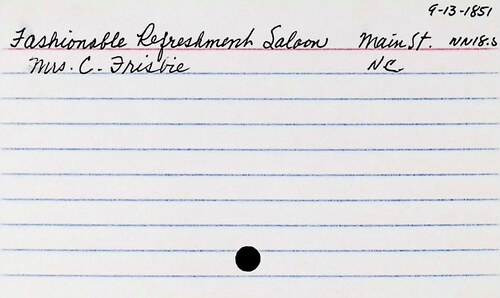 9-13-1851
Fashionable Refreshment Saloon Main St. NN18.3
Mrs. C. Frisbie NC